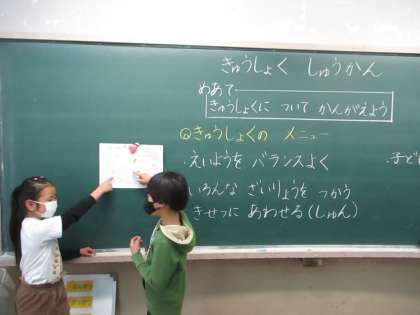 きゅうしょく しゅうかん
めあて
きゅうしょくに ついて かんがえよう
きゅうしょくの メニュー
・えいようを バランスよく
いろんな ざいりょうを つかう
きせつに あわせる(しゅん)
・子ど